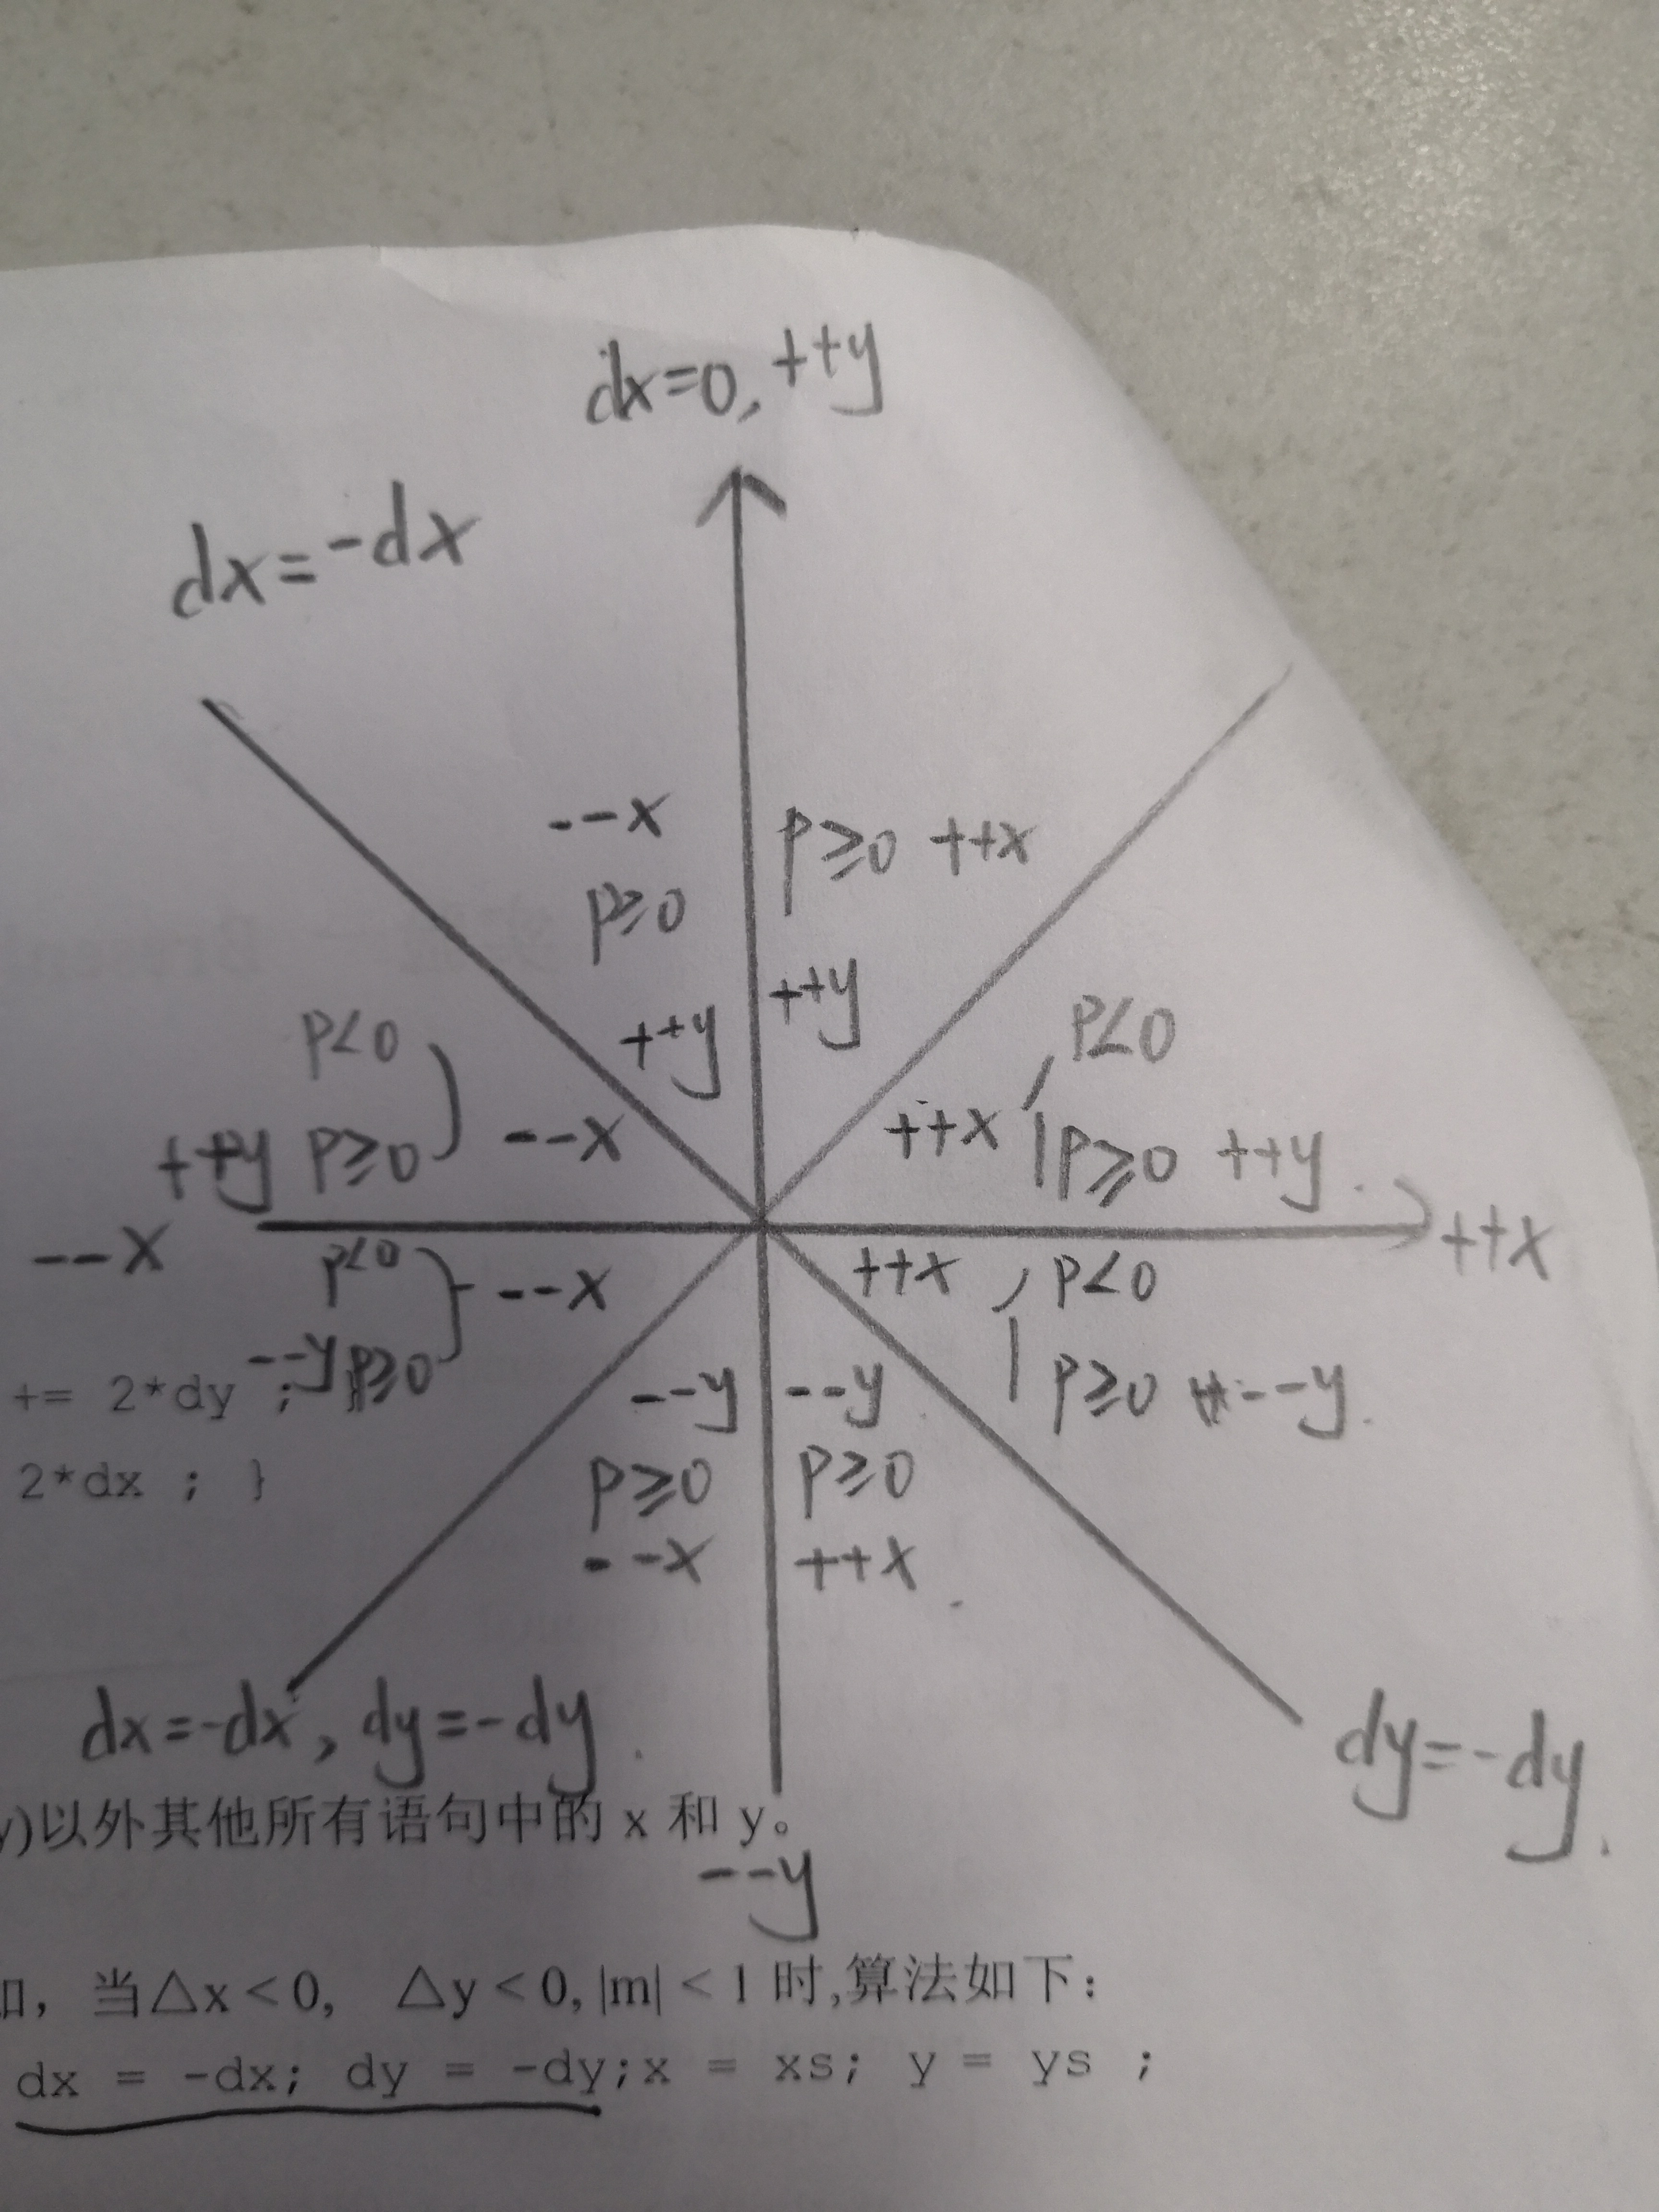 dx=0, ++y
dx=-dx
--x
p≥0 ++x
p≥0
++y
++y
p<0
p<0
++y p≥0
--x
++x
p≥0 ++y.
--x
++x
p<0
--x
++x
p<0
--y p≥0
p≥0 --y.
+= 2*dy ;
--y
--y
2*dx ; }
p≥0
p≥0
--x
++x
dx=-dx, dy=-dy.
dy=-dy.
y)以外其他所有语句中的 x 和 y。
--y
如，当△x < 0, △y < 0, |m| < 1 时,算法如下：
dx = -dx; dy = -dy;x = xs; y = ys ;